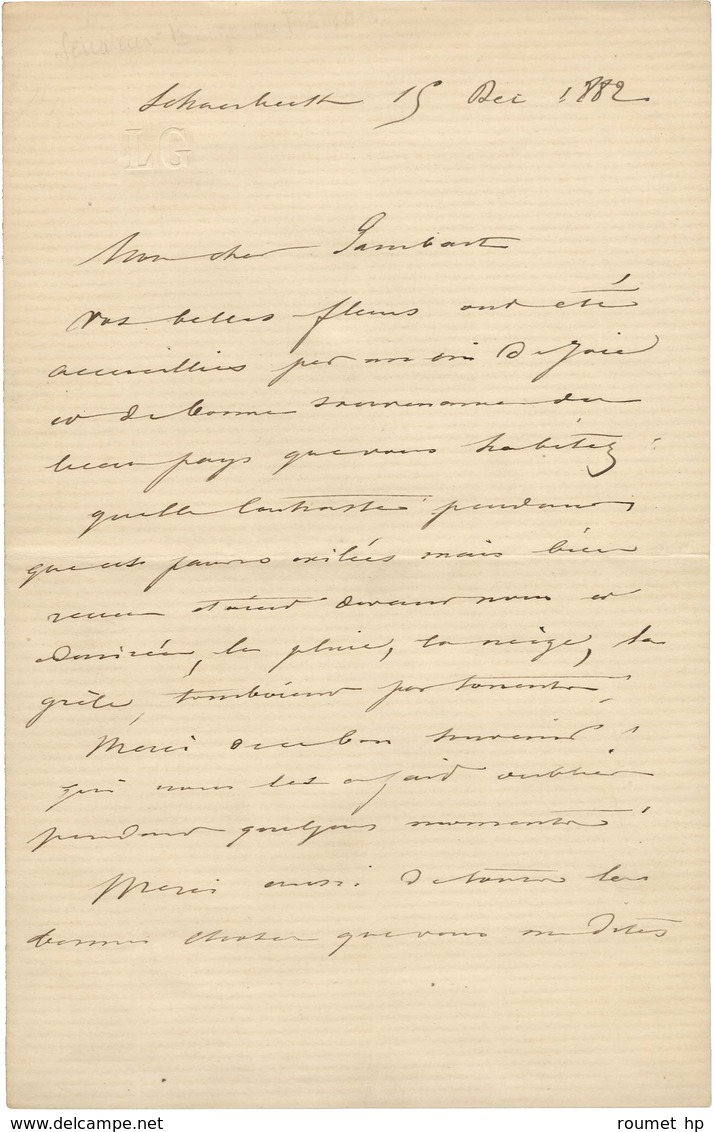 Schaerbeek 15 Dec 1882
LG
Mon cher Gambart
Vos belles fleurs ont été
accueillies par un cri de joie
et de bonne souvenance du
beau pays que vous habitez.
quelle contraste pendant
que ces pauvres exilées mais bien
venues étaient devant nous et
, la pluie, la neige, la
grêle, tombaient par torrents,
Merci de ce bon souvenir,
qui nous les a fait oublier
pendant quelques moments
Merci aussi de toutes les
bonnes choses que vous me dites
roumet hp